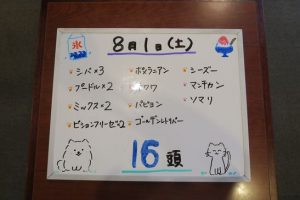 氷
8月1日(土)
シバ×3
プードル×2
ミックス×2
ビションフリーゼ×2
ポメラニアン
チワワ
パピヨン
ゴールデンレトリバー
シーズー
マンチカン
ソマリ
16頭